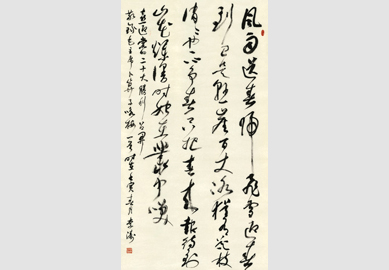 风雨送春归飞雪迎春
到已是悬崖百丈冰犹有花枝
俏俏也不争春只把春来报待到
山花烂漫时她在丛中笑
喜迎党的二十大胜利召开
敬录毛主席卜算子咏梅一首时在壬寅春月